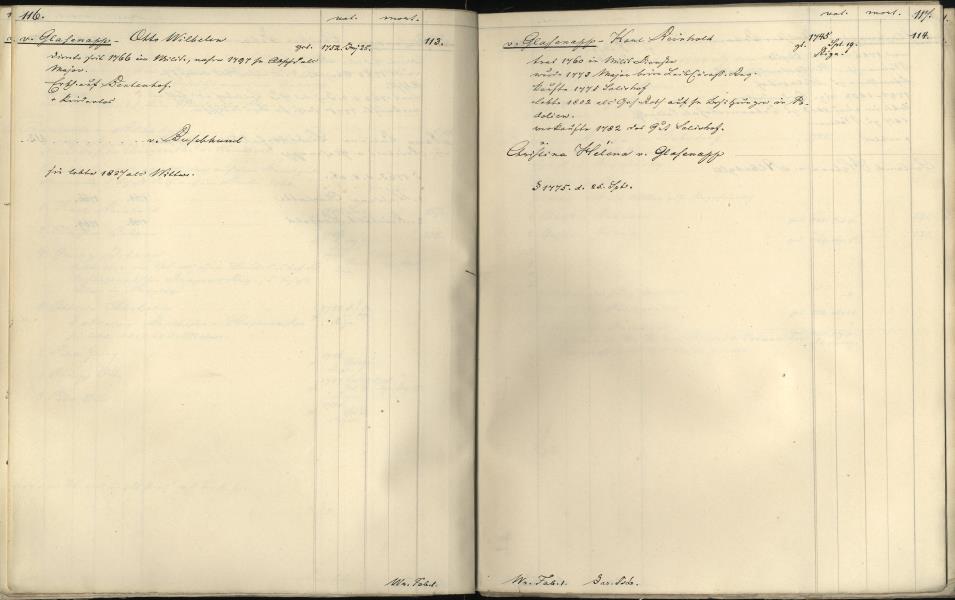 116.
nat. mort.
v. Glasenapp - Otto Wilhelm
get. 1752. Maj 25.
113.
diente seit 1766 im Milit., nahm 1797 sn Absch. als
Major.
Erbh. auf Bentenhof.
† kinderlos
v. Buschhund
sie lebte 1807 als Wittwe.
Wr. Tabel.
nat. mort. 117.
v. Glasenapp - Karl Reinhold
gt. 1745 Spt. 19. Riga.
114.
trat 1760 in Milit. Dienste
wurde 1773 Major beim Leib Cürass. Reg.
kaufte 1775 Salishof
lebte 1802 als Hof Rath auf sn Besitzungen in Po-
dolien.
verkaufte 1782 das Gut Salishof.
Christina Helena v. Glasenapp
1775. d. 25. Spt.
Wr. Tabel.